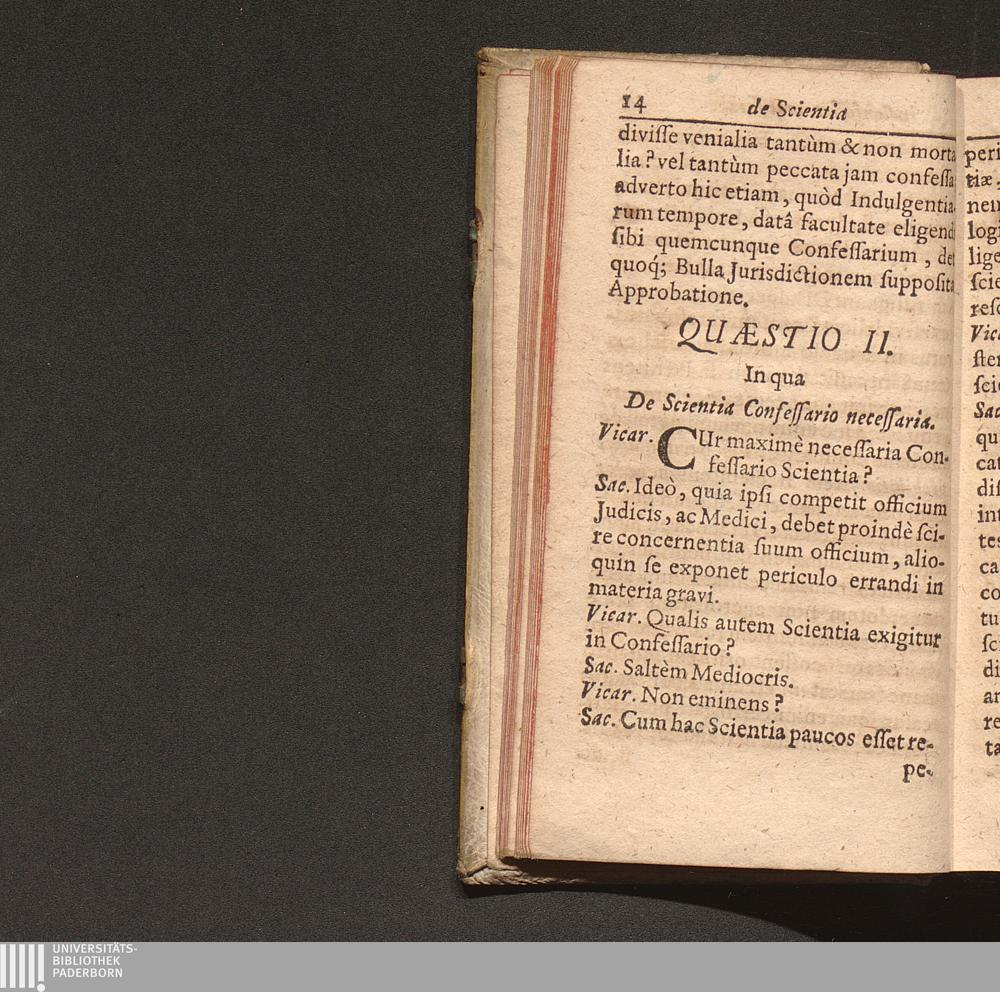 14 de Scientia
divisse venialia tantùm & non morta
lia? vel tantùm peccata jam confessa
adverto hic etiam, quòd Indulgentia
rum tempore, datâ facultate eligend
sibi quemcunque Confessarium, det
quoq́; Bulla Jurisdictionem supposita
Approbatione.
QUÆSTIO II.
In qua
De Scientia Confessario necessaria.
Vicar. CUr maximè necessaria Con-
fessario Scientia?
Sac. Ideò, quia ipsi competit officium
Judicis, ac Medici, debet proindè sci-
re concernentia suum officium, alio-
quin se exponet periculo errandi in
materia gravi.
Vicar. Qualis autem Scientia exigitur
in Confessario?
Sac. Saltèm Mediocris.
Vicar. Non eminens?
Sac. Cum hac Scientia paucos esset re-
pe-
peri
tiæ,
nem
logi
lige
scie
resc
Vica
ster
scie
Sac
qu
cat
dis
int
tes
ca
co
tu
sc
di
an
re
ta
UNIVERSITÄTS-
BIBLIOTHEK
PADERBORN